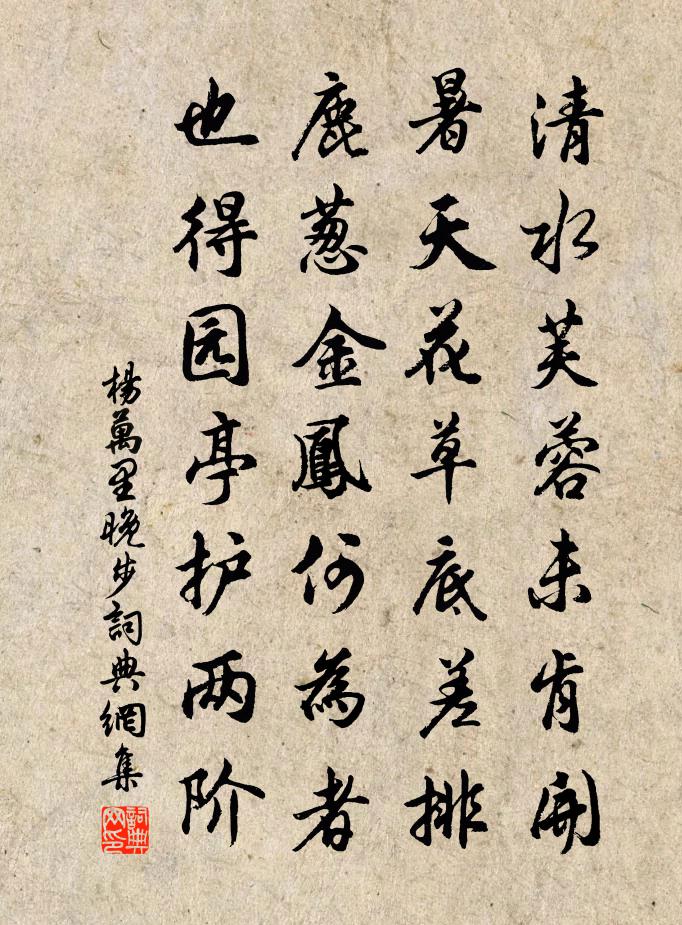 清水芙蓉未肯開
暑天花草底差排
鹿葱金鳳何為者
也得园亭护两阶
楊萬里晚步詞典網集
詞典网印